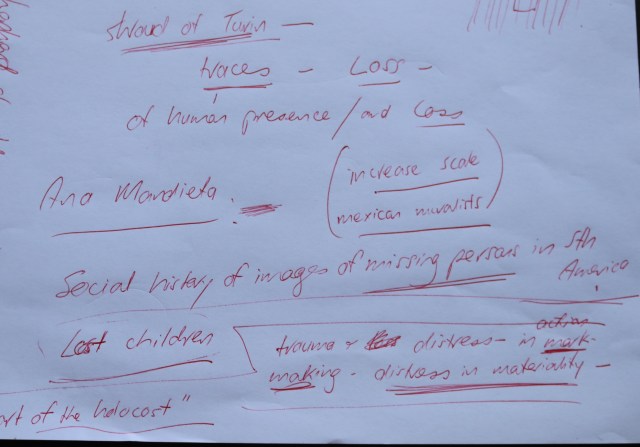 shroud of Turin —
traces – Loss –
of human presence / and Loss
(increase scale
Ana Mandieta.
mexican muralists)
Social history of images of missing persons in Sth
America
Lost children
trauma & distress – in action mark-
making – distress in materiality –
art of the holocost"